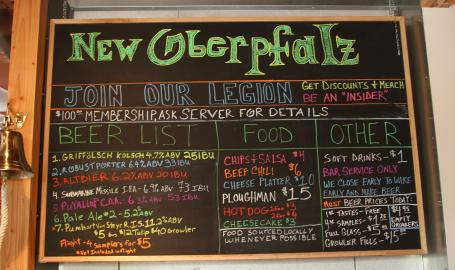 NEW OBERPFALZ
JOIN OUR LEGION
GET DISCOUNTS + MERCH
BE AN "INSIDER"
$100.00 MEMBERSHIP. ASK SERVER FOR DETAILS
BEER LIST
1. GRIFFÖLSCH KOLSCH 4.7% ABV 25 IBU
2. ROBUST PORTER 6.4% ABV 33 IBU
3. ALTBIER 6.2% ABV 20 IBU
4. MISSILE I.P.A. - 6.9% ABV 73 IBU
5. C.D.A. - 6.3% ABV
6. Pale Ale #2 - 5.2% ABV
7. R.I.S. 11.2% ABV
$5 $12 Tulip $40 Growler
Flight - 4 Samplers for $5
Not Included in flight
FOOD
CHIPS + SALSA $4
BEEF CHILI $6
CHEESE PLATTER $10
PLOUGHMAN $15
HOT DOG
CHEESECAKE $3
FOOD SOURCED LOCALLY
WHENEVER POSSIBLE
OTHER
SOFT DRINKS - $1
BAR SERVICE ONLY
WE CLOSE EARLY TO WAKE
EARLY AND MAKE BEER
MOST BEER PRICES TODAY:
1oz TASTES - FREE
4oz SAMPLES - $1.25
FULL GLASS - $5
GROWLER FILLS - $15
$4.95
EMPTY
GROWLERS